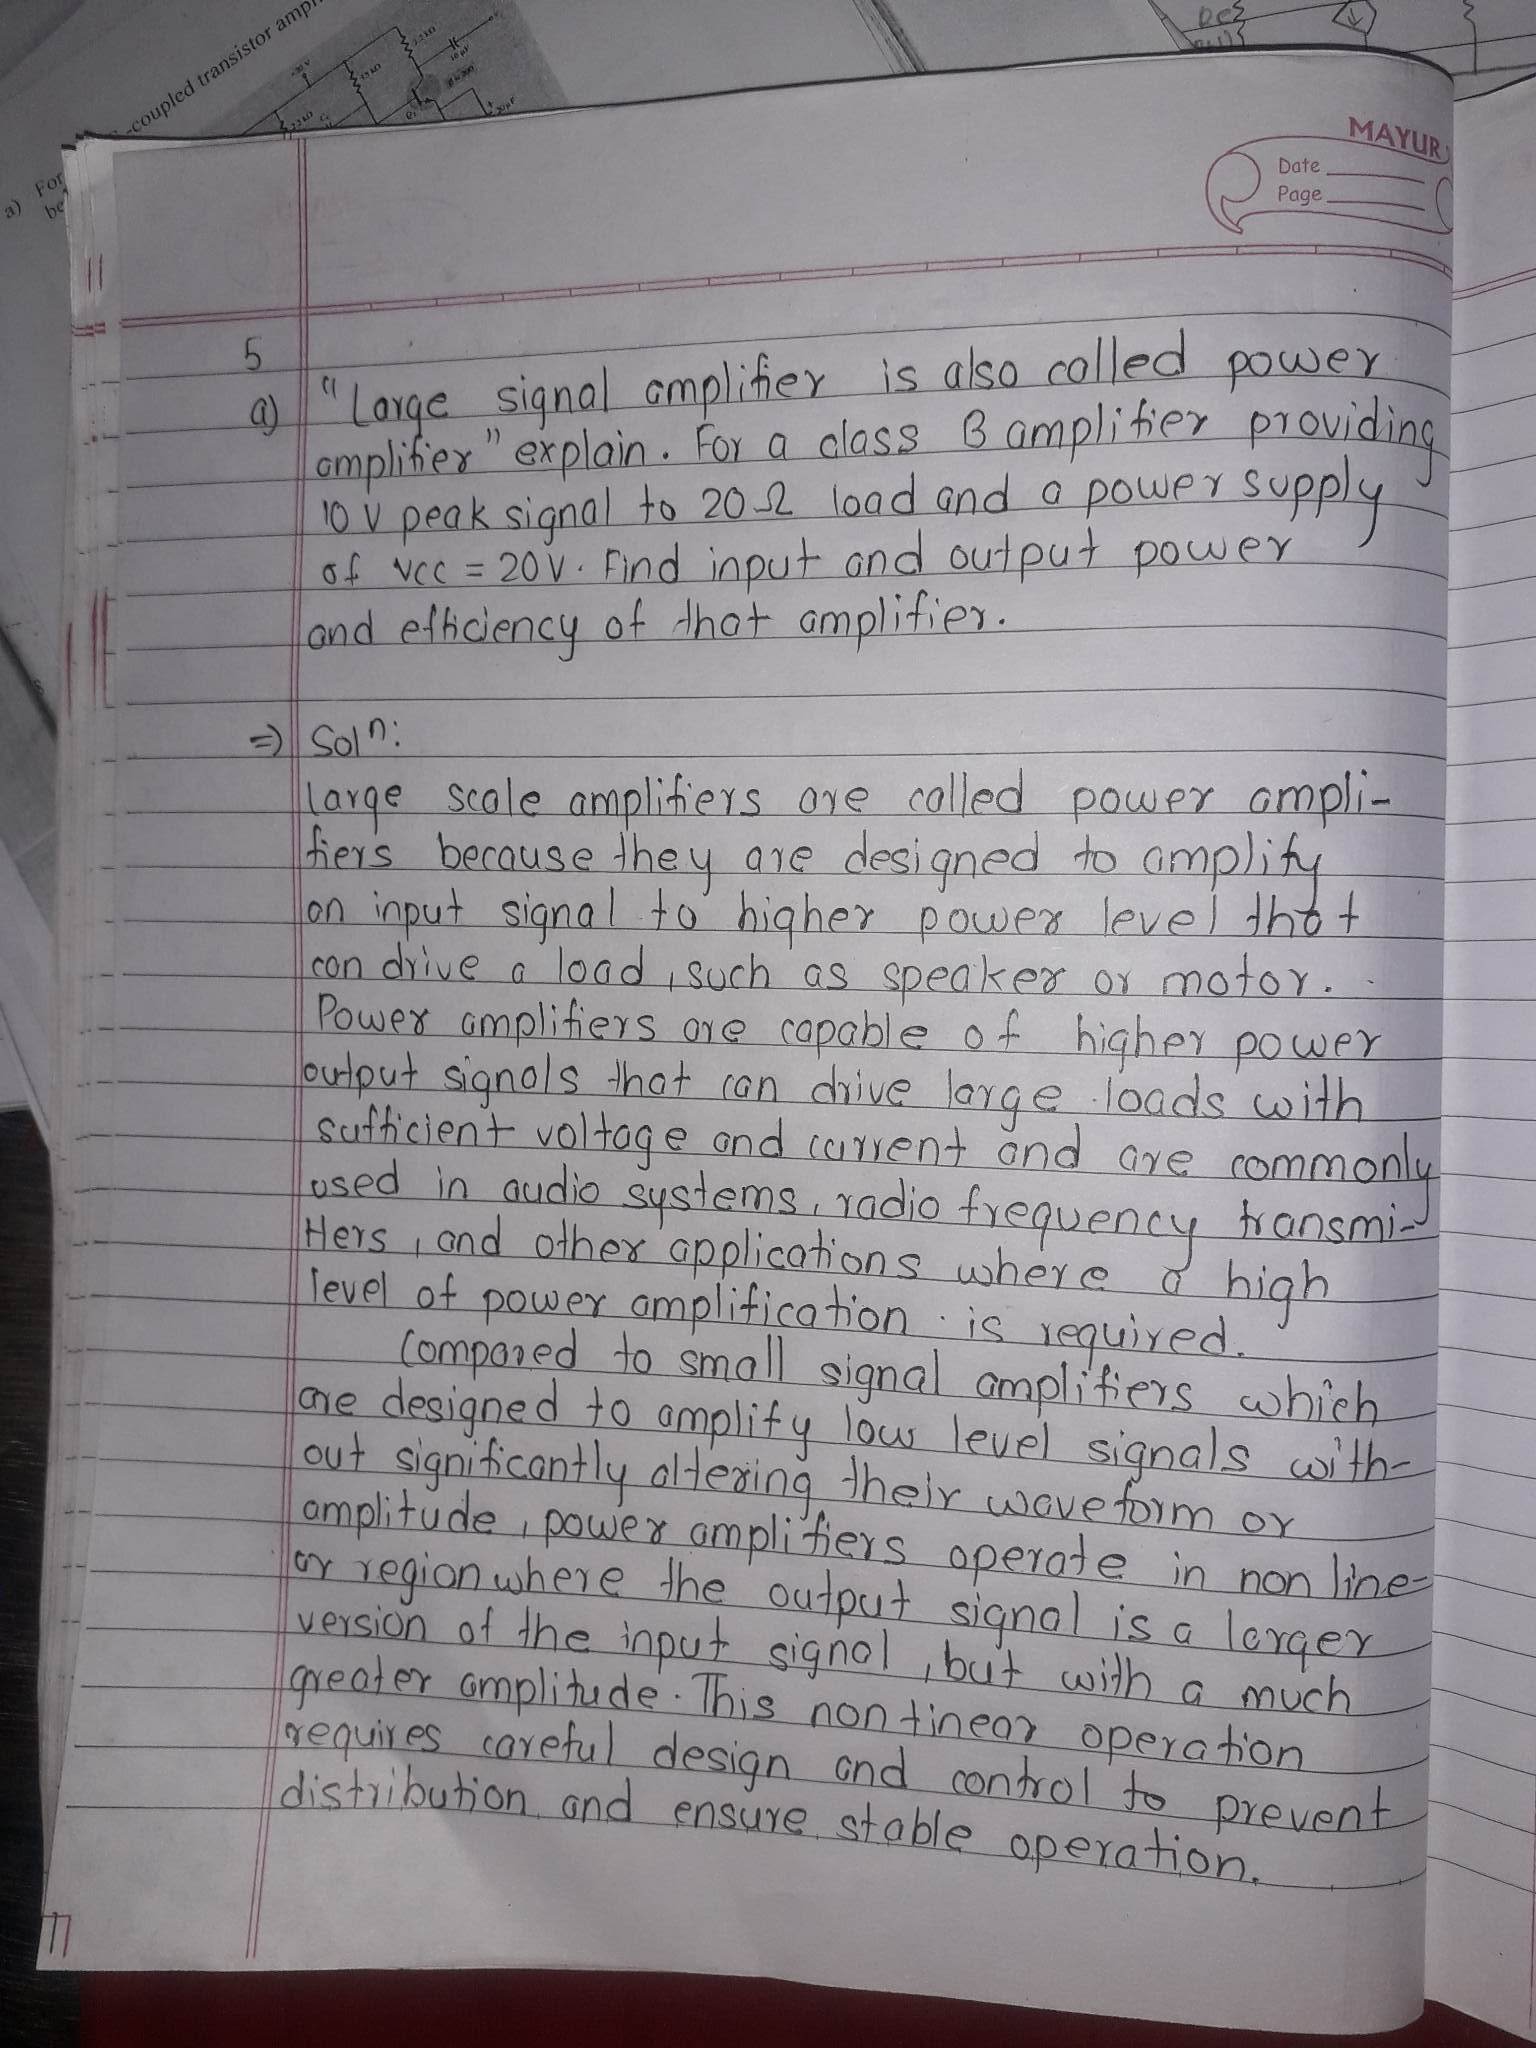 -coupled transistor ampl
a) For
be
MAYUR
Date
Page
5
a) "Large signal amplifier is also called power
amplifier" explain. For a class B amplifier providing
10 V peak signal to 20Ω load and a power supply
of Vcc = 20V. Find input and output power
and efficiency of that amplifier.
=) Solⁿ:
large scale amplifiers are called power ampli-
fiers because they are designed to amplify
an input signal to higher power level that
can drive a load, such as speaker or motor.
Power amplifiers are capable of higher power
output signals that can drive large loads with
sufficient voltage and current and are commonly
used in audio systems, radio frequency transmi-
tters, and other applications where a high
level of power amplification is required.
Compared to small signal amplifiers which
are designed to amplify low level signals with-
out significantly altering their waveform or
amplitude, power amplifiers operate in non line-
ar region where the output signal is a larger
version of the input signal, but with a much
greater amplitude. This non tinear operation
requires careful design and control to prevent
distribution and ensure stable operation.